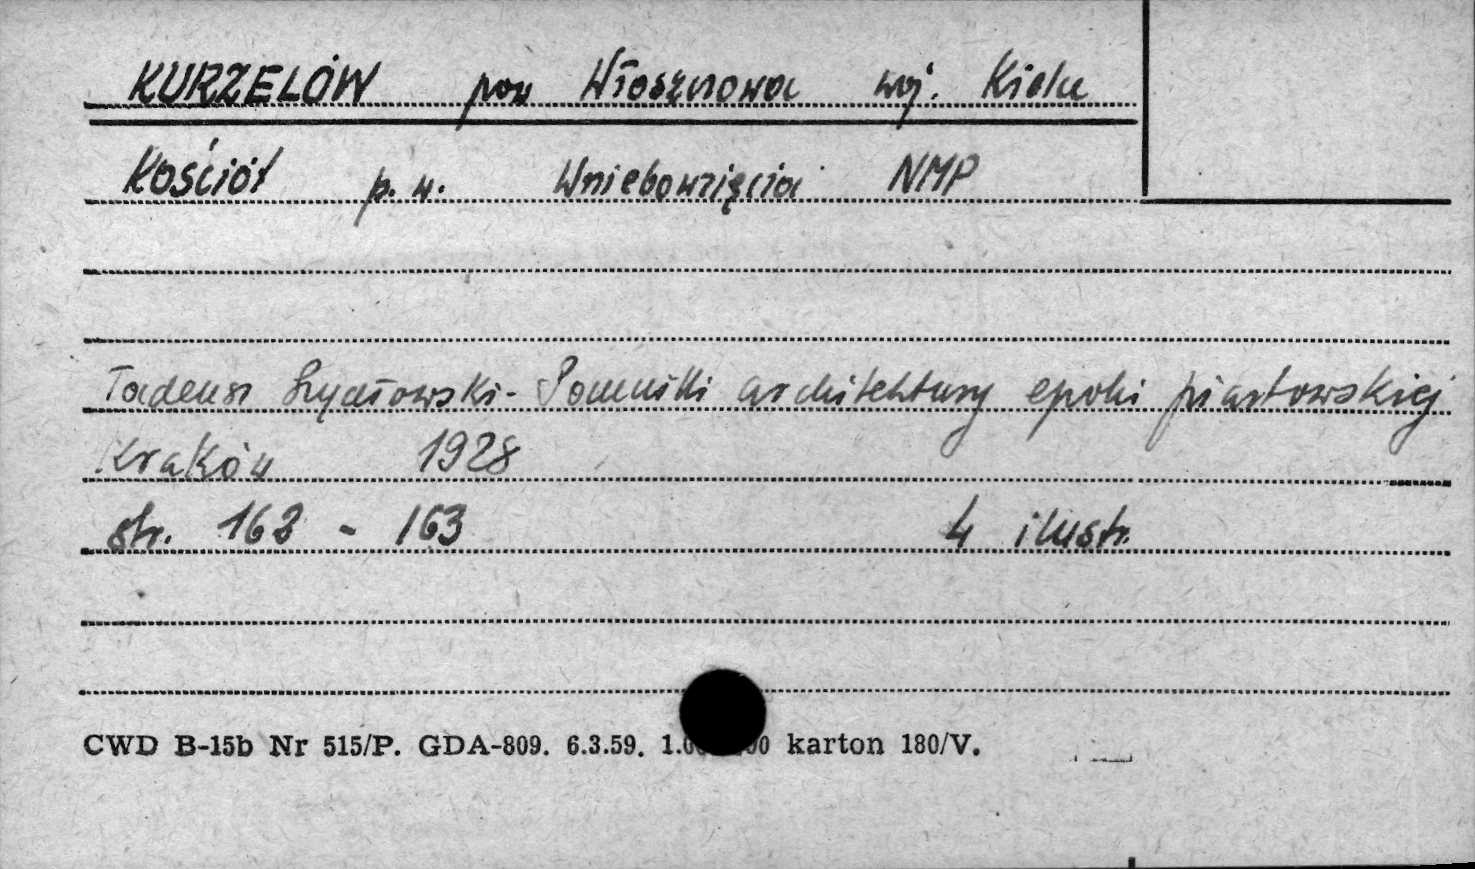 KURZELÓW pow Włoszczowa woj. Kielce
Kościół p. w. Wniebowzięcia NMP
Tadeusz Szydłowski - Pomniki architektury epoki piastowskiej
Kraków 1928
str. 162 - 163 4 ilustr.
CWD B-15b Nr 515/P. GDA-809. 6.3.59. karton 180/V.